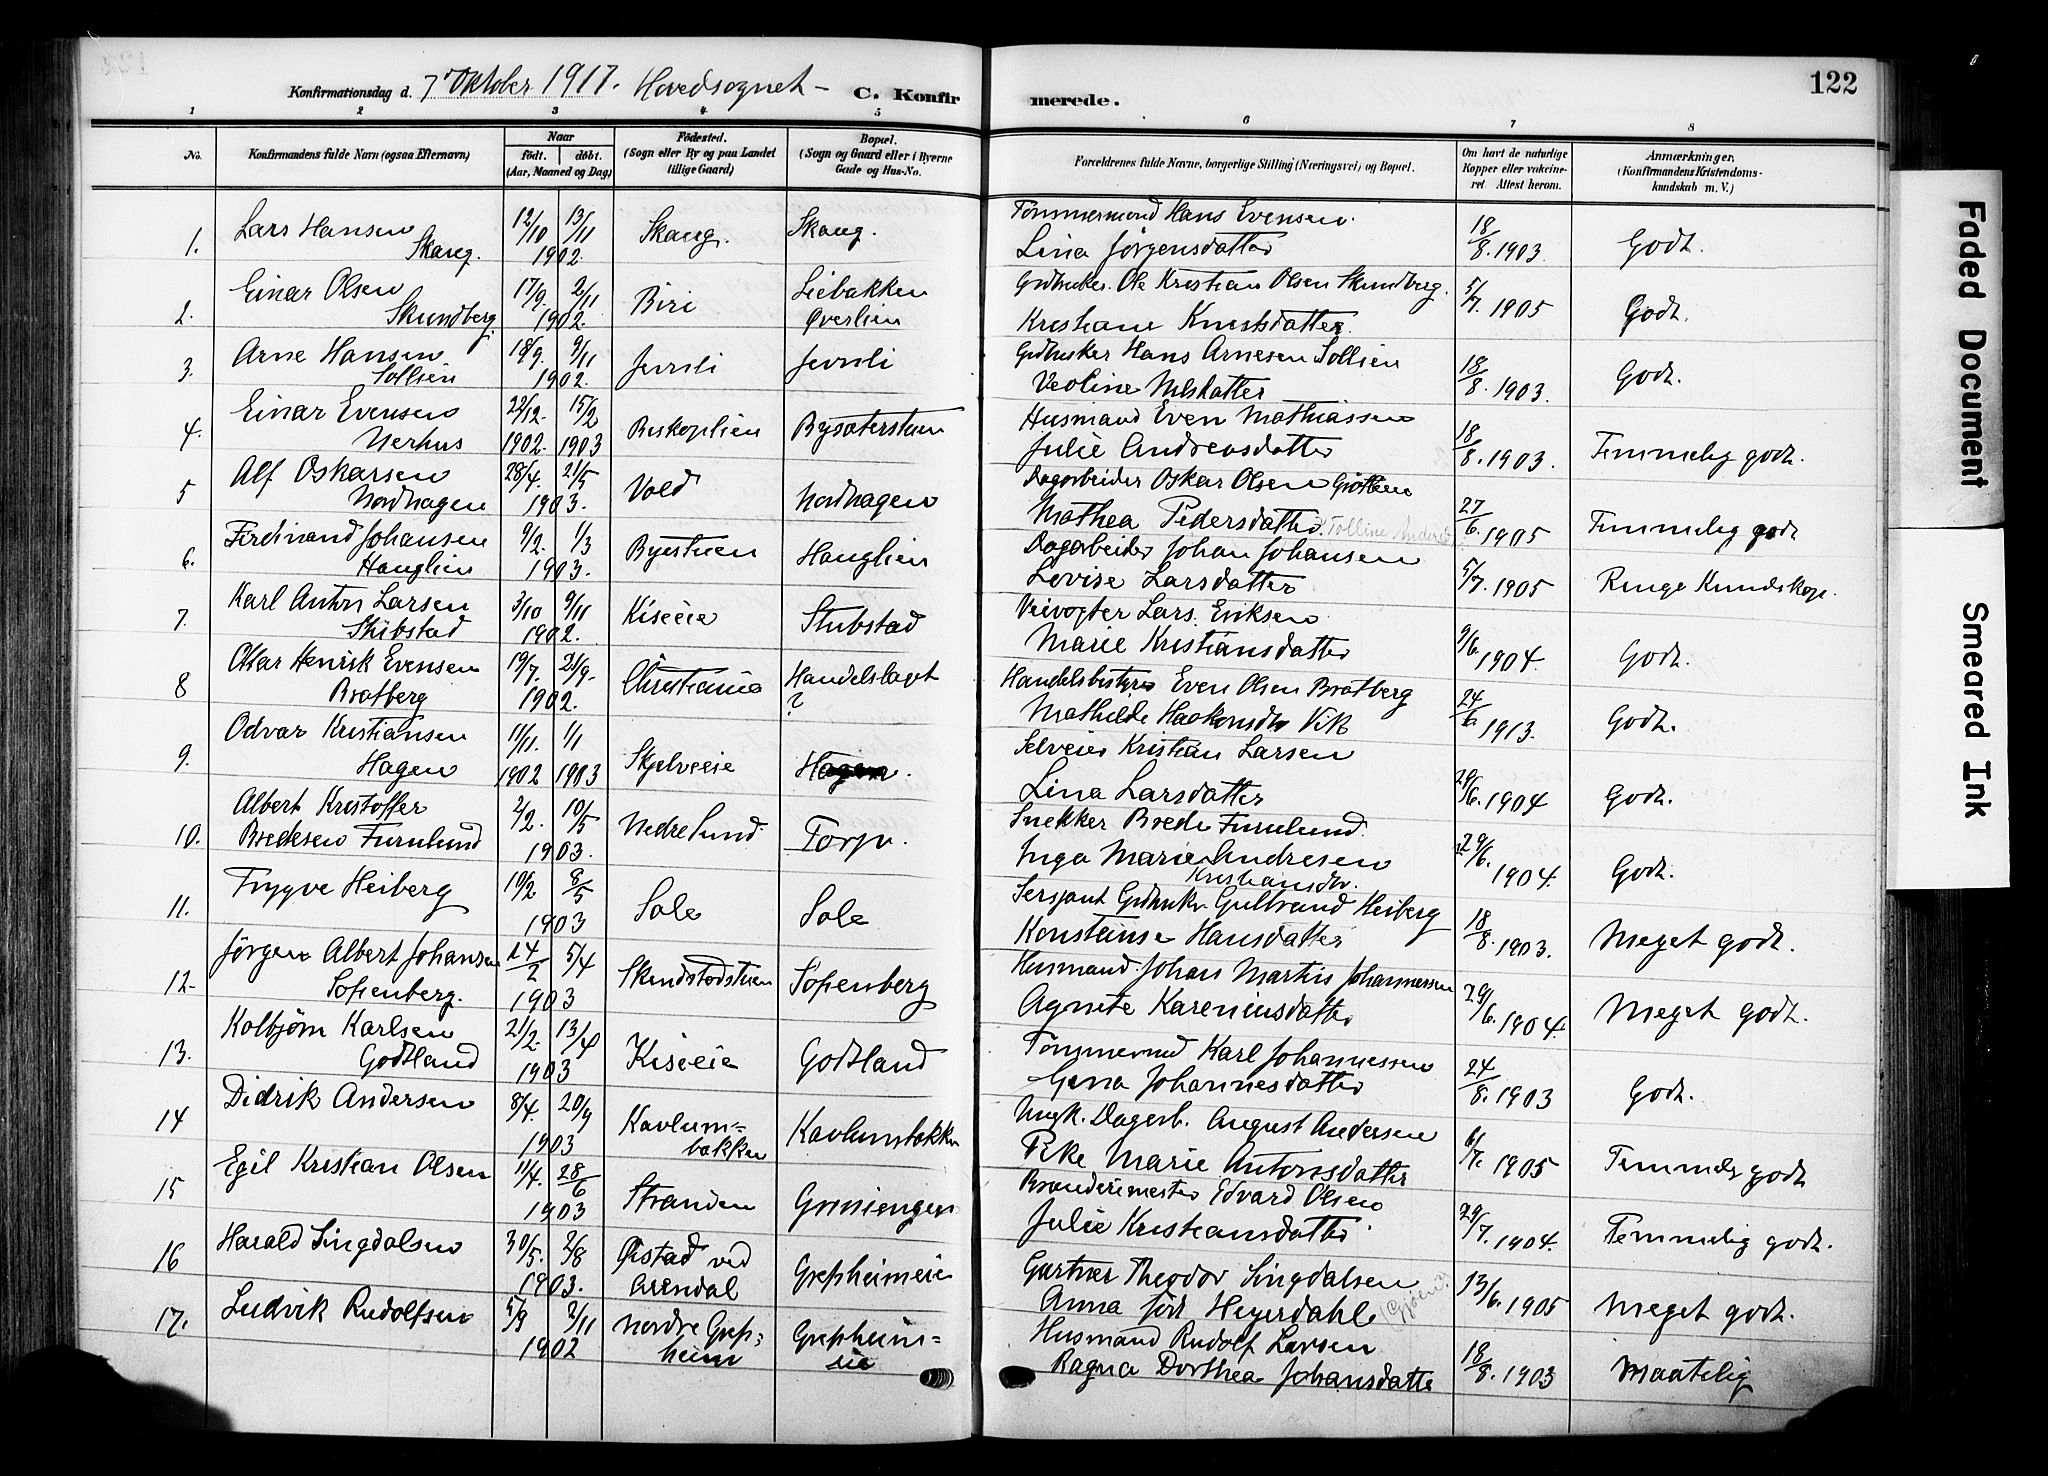 Konfirmationsdag d. 7' Oktober 1917. Hovedsognet – C. Konfirmerede. 122
1 2 3 4 5 6 7 8
No. Konfirmandens fulde Navn (ogsaa Efternavn) Naar født. døbt. (Aar, Maaned og Dag) Fødested. (Sogn eller By og paa Landet tillige Gaard) Bopæl. (Sogn og Gaard eller i Byerne Gade og Hus-No. Forældrenes fulde Navne, borgerlige Stilling (Næringsvei) og Bopæl. Om havt de naturlige Kopper eller vakcineret. Attest herom. Anmærkninger, (Konfirmandens Kristendomskundskab m. V.)
Lars Hansen 12/10 13/11 Skaug. Skaug. Tømmermand Hans Evensen.
1. Skaug. 1902. Lina Jørgensdatter 18/8. 1903 Godt.
Einar Olsen 17/9. 2/11 Biri Liebakken Grdbruker Ole Kristian Olsen Skundberg.
2. Skundberg. 1902. Øverlien Kristiane Knutsdatter. 5/7. 1905 Godt.
Arne Hansen 18/9. 9/11 Jevnli Jevnli Gdbruker Hans Arnesen Sollien
3. Sollien 1902. Veoline Nilsdatter 18/8. 1903. Godt.
Einar Evensen 22/12. 15/2 Biskoplien Bysæterstuen Husmand Even Mathiassen
4. Nerhus 1902. 1903 Julie Andreasdatter 18/8. 1903. Temmelig godt.
Alf Oskarsen 28/4. 21/5 Vold Nordhagen Dagarbeider Oskar Olsen
5 Nordhagen 1903. Mathea Pedersdatter. 27/6. 1905 Temmelig godt
Ferdinand Johansen 9/2. 1/3 Byestuen Hauglien Dagarbeider Johan Johansen
6. Hauglien 1903. Lovise Larsdatter 5/7. 1905 Ringe Kundskap.
Karl Anton Larsen 3/10 9/11 Kiseeie Stubstad Veivogter Lars Eriksen
7. Stubstad 1902. Marie Kristiansdatter 9/6. 1904. Godt.
Ottar Henrik Evensen 19/7. 21/9. Christiania Handelslaget Handelsbestyrer Even Olsen Bratberg
8 Bratberg 1902. ? Mathilde Haakonsdtr Vik 24/6. 1913. Godt.
Odvar Kristiansen 11/11. 1/1 Skjelveeie Hagen. Selveier Kristian Larsen
9. Hagen 1902 1903 Lina Larsdatter 29/6. 1904 Godt.
Albert Kristoffer 2/2. 10/5 Nedre Sund Torp. Snekker Brede Furulund.
10. Bredesen Furulund 1903. Inga Marie Andresen Kristiansdtr. 29/6. 1904. Godt.
Trygve Heiberg 10/2. 8/5 Sole Sole Sersjant Gdbruker Gulbrand Heiberg
11. 1903 Konstanse Hansdatter 18/8. 1903. Meget godt.
Jørgen Albert Johansen 24/2 5/4 Skundstadstuen Sofienberg Husmand Johan Martin Johannessen
12. Sofienberg. 1903 Agnete Kareniusdatter 29/6. 1904. Meget godt.
Kolbjørn Karlsen 21/2. 13/4 Kiseeie Godtland Tømmermd Karl Johannessen
13. Godtland 1903 Gina Johannesdatter 24/8. 1903 Godt.
Didrik Andersen 8/4. 20/9 Kavlumbakken Kavlumbakken Ungk. Dagarb. August Andersen
14 1903 Pike Marie Antonsdatter 6/7. 1905 Temmelig godt
Egil Kristian Olsen 11/4. 28/6 Stranden Grinienger Brænderimester Edvard Olsen
15 1903 Julie Kristiansdatter. 29/7. 1904. Temmelig godt.
Harald Singdalsen 30/5. 2/8 Øistad ved Arendal Grepheimeie Gartner Theodor Singdalsen
16 1903. Anna født Heyerdahl 13/6. 1905 Meget godt.
Ludvik Rudolfsen 5/9 2/11 Nordre Grepheim Grepheimeie Husmand Rudolf Larsen
17. 1902 Ragna Dorthea Johansdatter 18/8. 1903 Maatelig
Faded Document
Smeared Ink